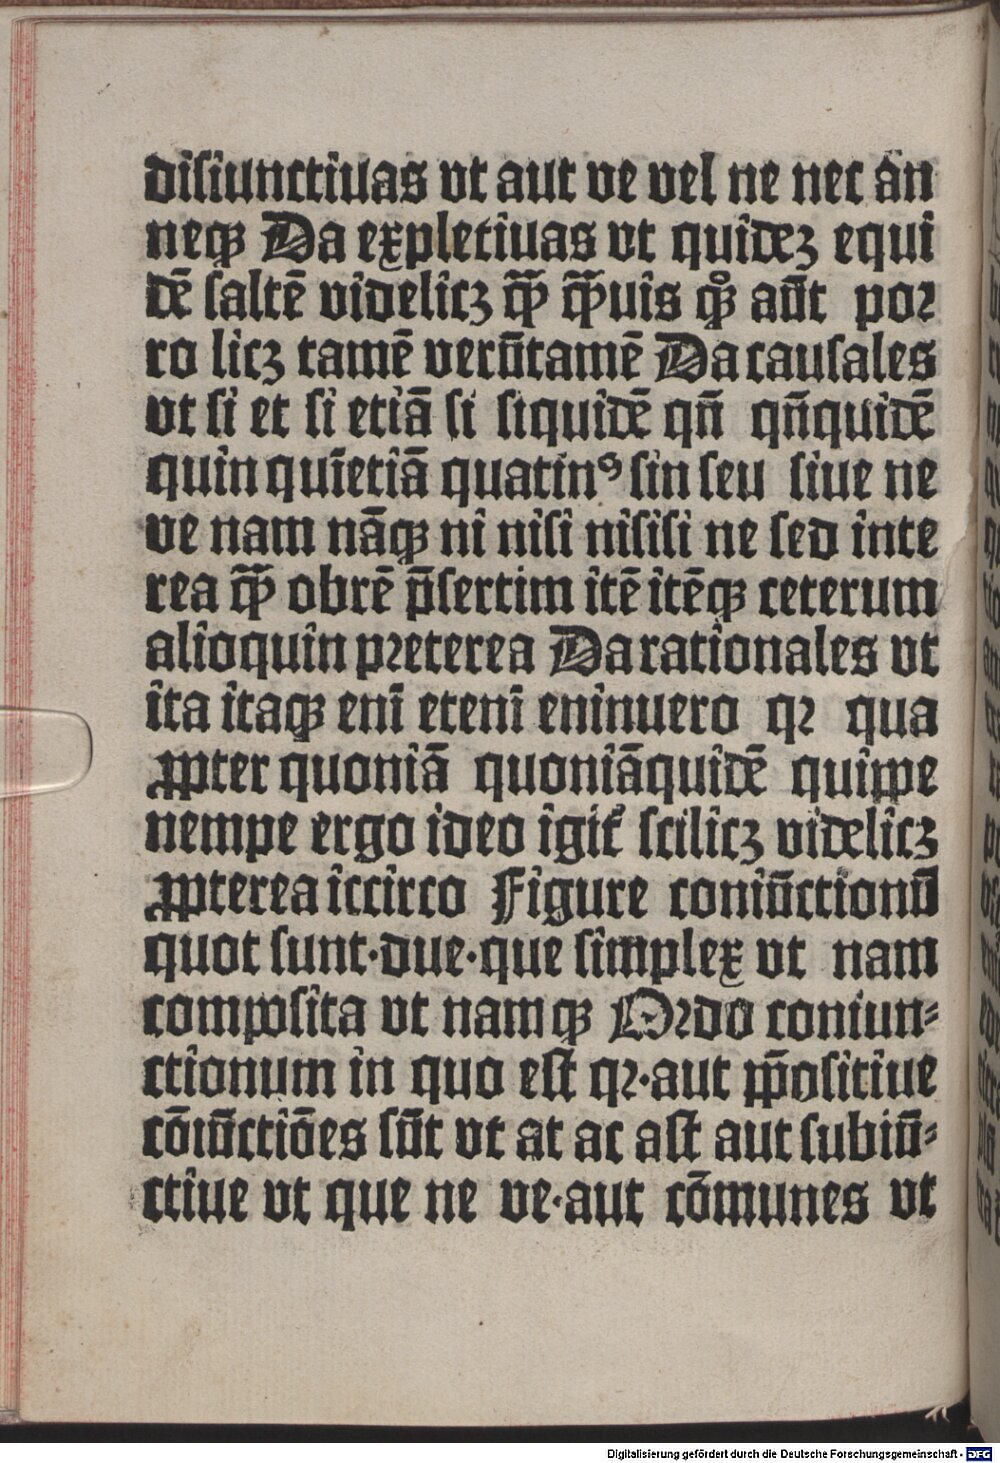 disiunctiuas vt aut ve vel ne nec an
neqꝫ Da expletiuas vt quideꝫ equi
dē saltē videlicꝫ qͣ̄ꝫ qͣ̄ꝫuis qꝫͦ aūt poꝛ
ro licꝫ tamē verūtamē Da causales
vt si et si etiā si siquidē qn̄ qn̄quidē
quin quīetiā quatinꝰ sin seu siue ne
ve nam nāqꝫ ni nisi nisisi ne sed inte
rea qͣ̄ꝫ obrē p̄sertim itē itēqꝫ ceterum
alioquin pꝛeterea Da rationales vt
ita itaqꝫ eni̅ eteni̅ eninuero qꝛ qua
ꝓpter quoniā quoniāquidē quippe
nempe ergo ideo igit᷑ scilicꝫ videlicꝫ
ꝓpterea iccirco Figure coniūctionū
quot sunt·due·que simplex vt nam
composita vt namqꝫ Oꝛdo coniun⸗
ctionum in quo est qꝛ·aut pp̄ositiue
cōiūctiōes sūt vt at ac ast aut subiū⸗
ctiue vt que ne ve·aut cōmunes vt
Digitalisierung gefördert durch die Deutsche Forschungsgemeinschaft - DFG